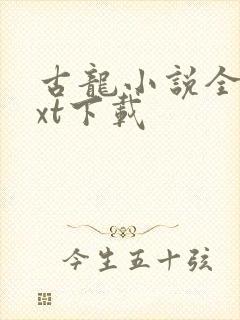 古龍小説全
xt下載
今生五十弦